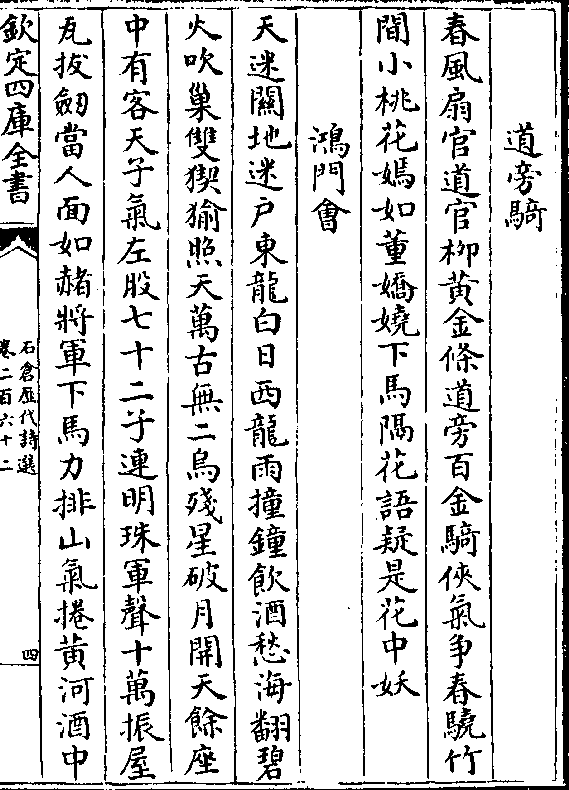 道旁騎
春風扇官道官柳黃金條道旁百金騎俠氣争春驍竹
間小桃花嫣如董嬌嬈下馬隔花語疑是花中妖
鴻門會
天迷關地迷户東龍白日西龍雨撞鐘飲酒愁海翻碧
火吹巢雙猰㺄照天萬古無二烏殘星破月開天餘座
中有客天子氣左股七十二子連明珠軍聲十萬振屋
瓦拔劒當人面如赭將軍下馬力排山氣捲黃河酒中
欽定四庫全書
石倉歷代詩選
卷二百六十二
四